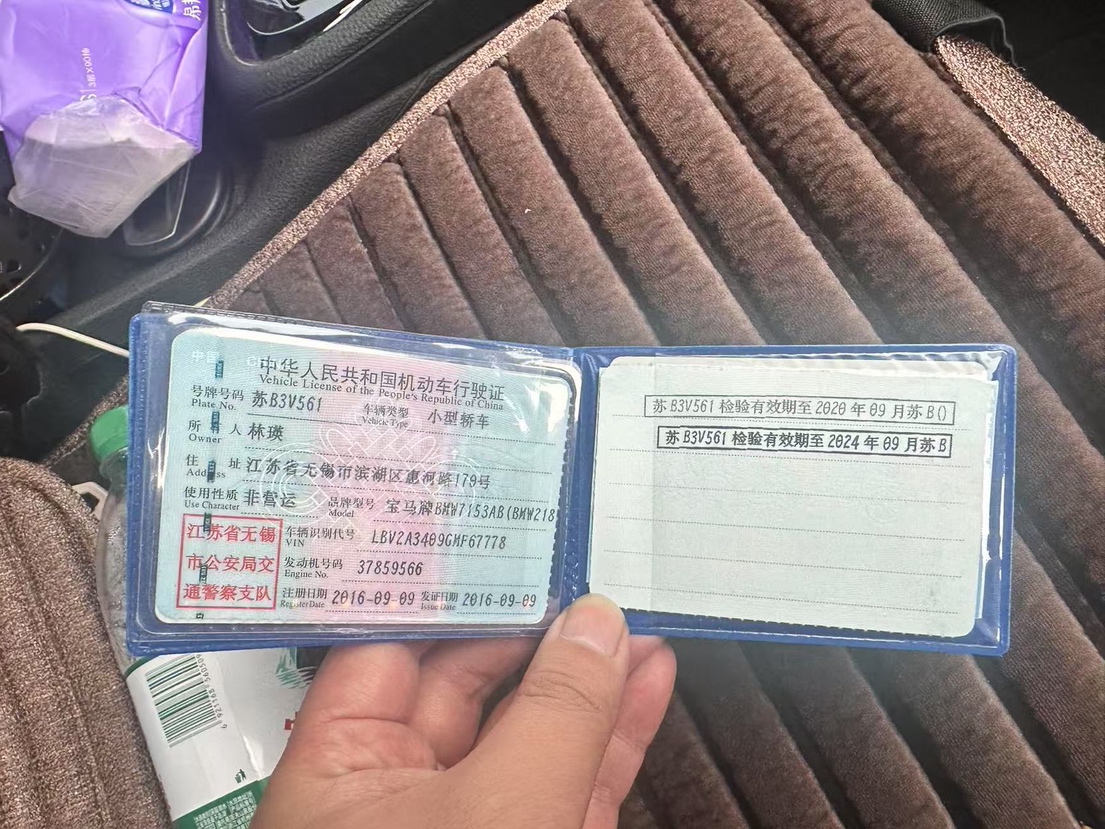 中华人民共和国机动车行驶证
Vehicle License of the People's Republic of China
号牌号码 苏B3V561 车辆类型 小型轿车
Plate No. Vehicle Type
所有人 林瑛
Owner
住址 江苏省无锡市滨湖区惠河路179号
Address
使用性质 非营运 品牌型号 宝马牌BMW7153AB(BMW218
Use Character Model
江苏省无锡
市公安局交
通警察支队
车辆识别代号 LBV2A3409GMF67778
VIN
发动机号码 37859566
Engine No.
注册日期 2016-09-09 发证日期 2016-09-09
Register Date Issue Date
苏B3V561 检验有效期至2020年09月苏B()
苏B3V561 检验有效期至2024年09月苏B